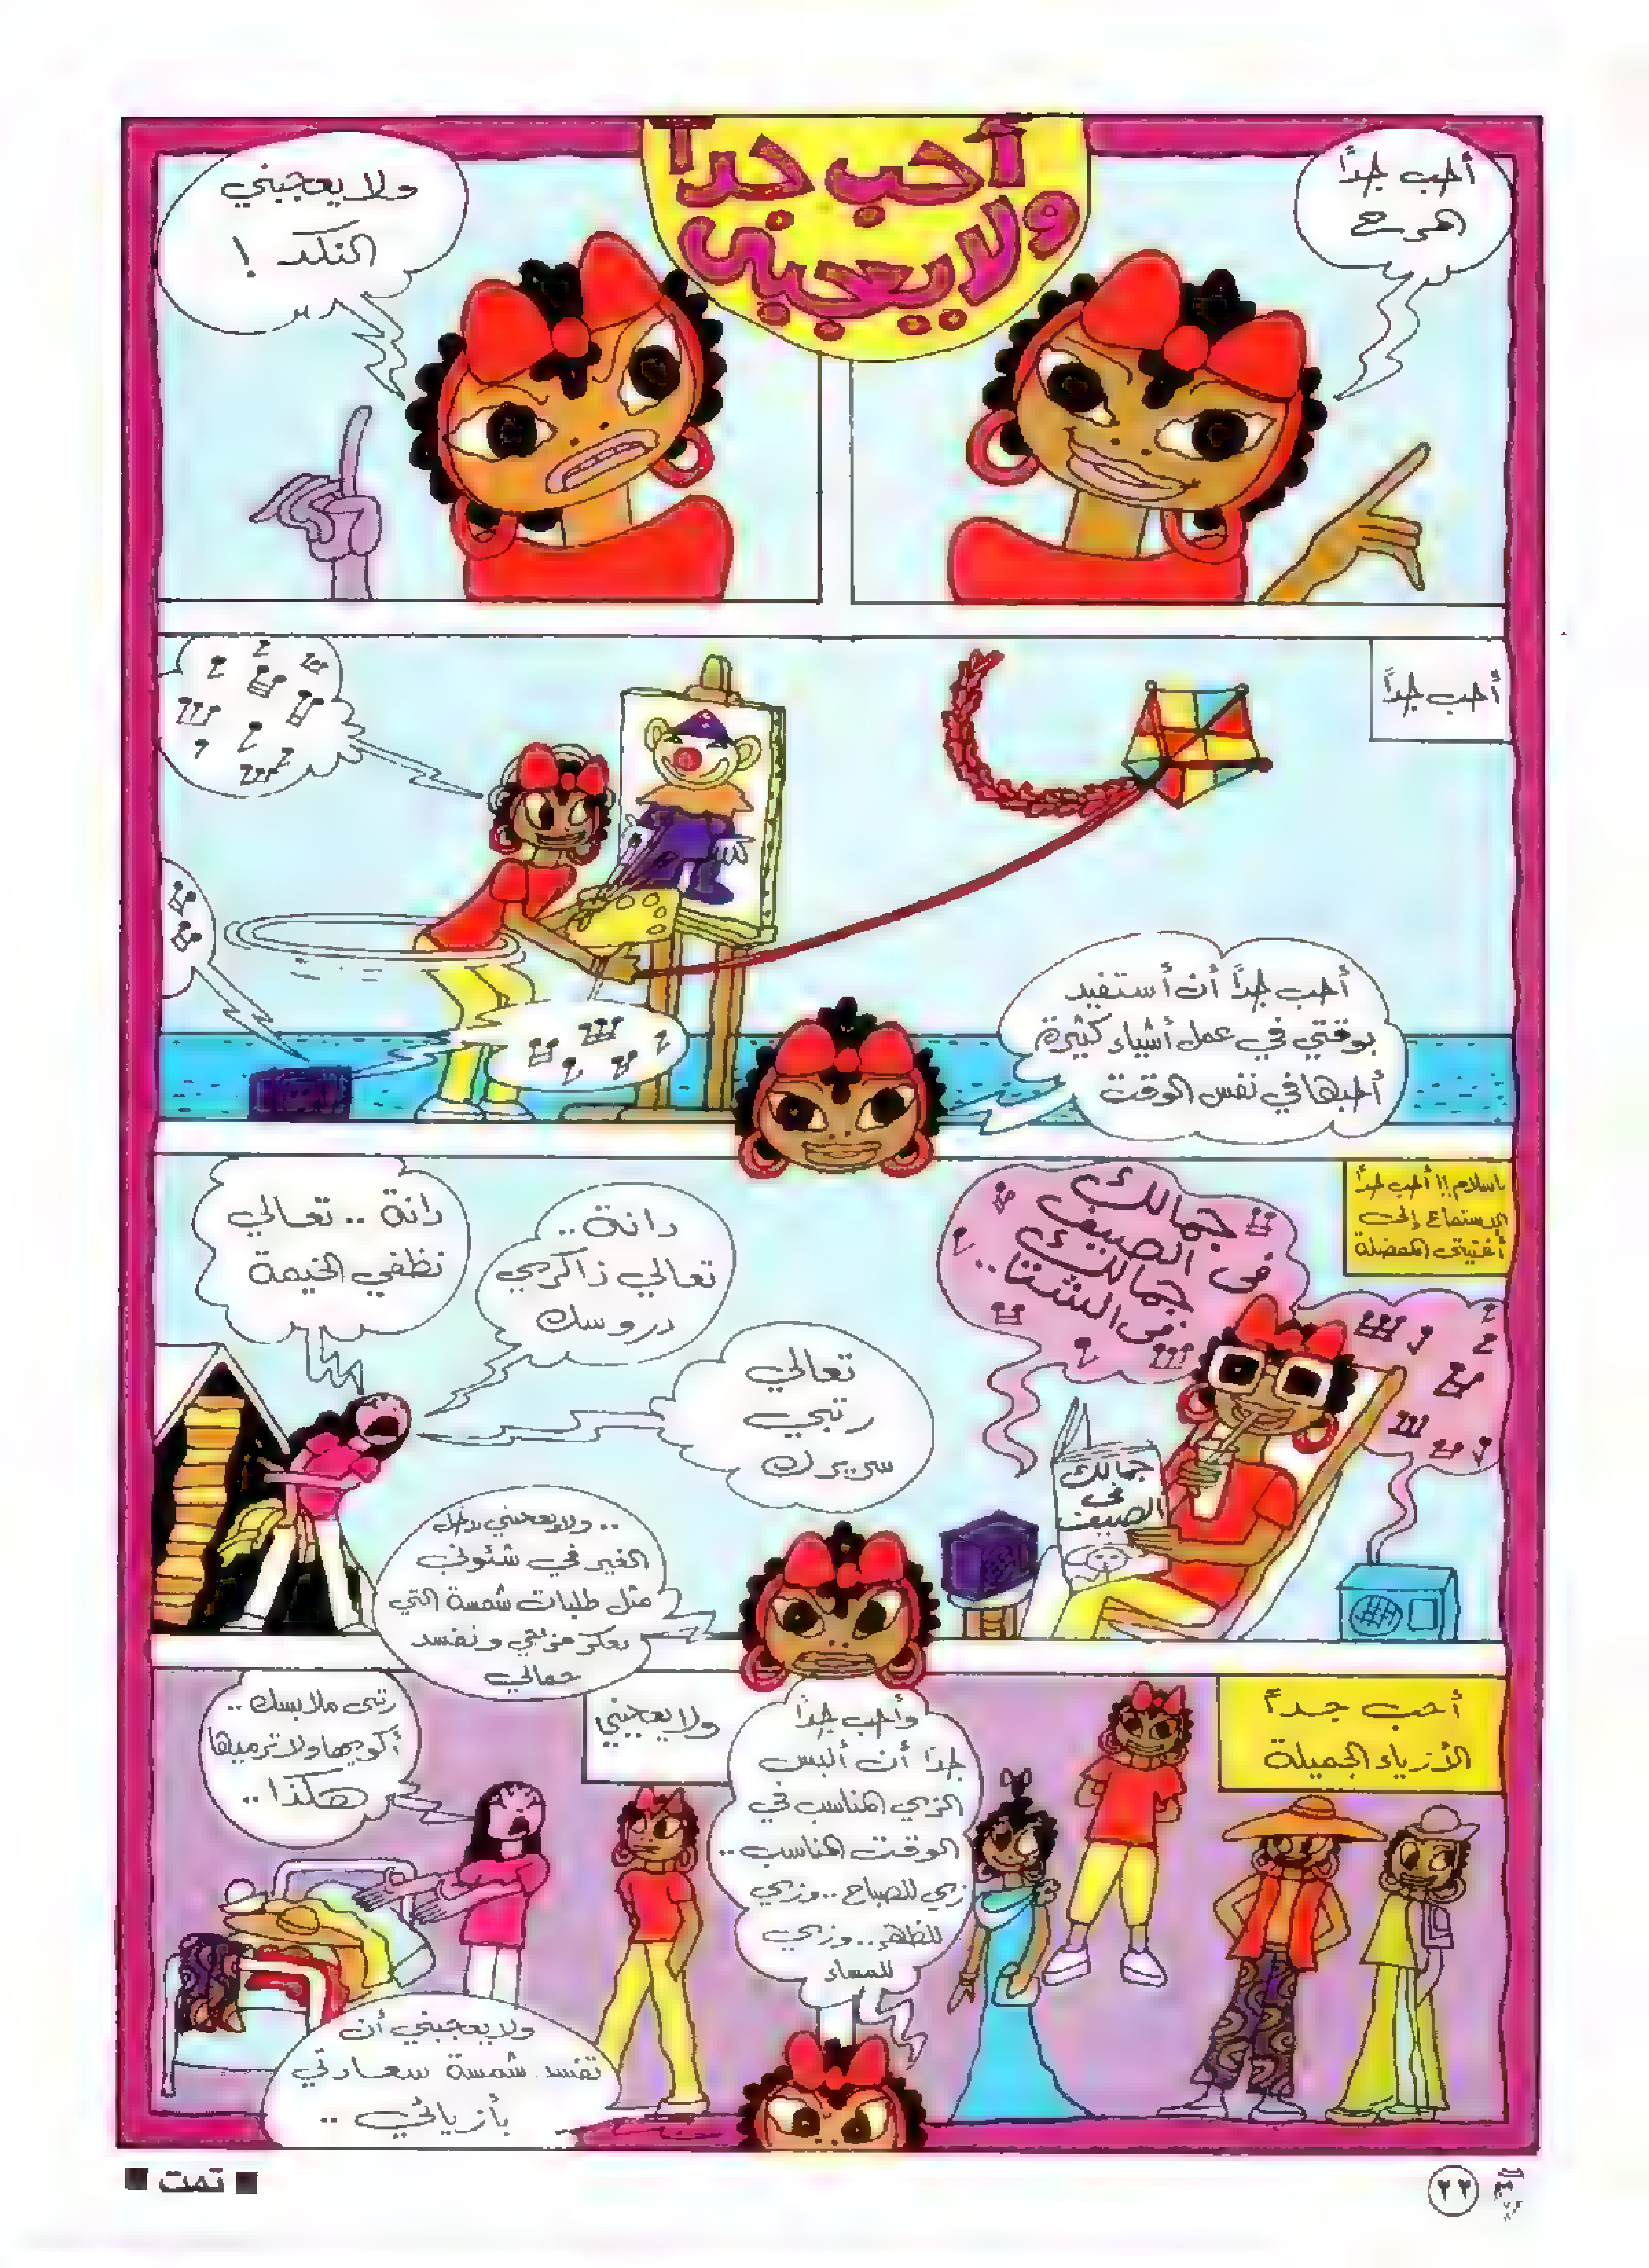 أحب جداً
ولا يعجبنى
أحب جداً
المرح
ولا يعجبني
النكد !
أحب جداً
أحب جداً أن أستفيد
بوقتي في عمل أشياء كثيرة
أحبها في نفس الوقت
ياسلام !! أحب جداً
الإستماع إلى
أغنيتي المفضلة
جمالك
فى الصيف
جمالك
فى الشتا ..
جمالك
فى
الصيف
دانة .. تعالي
نظفي الخيمة
دانة ..
تعالي ذاكري
دروسك
تعالي
رتبي
سريرك
.. ولا يعجبني تدخل
الغير في شئوني
مثل طلبات شمسة التي
تعكر مزاجي وتفسد
جمالي
أحب جداً
الأزياء الجميلة
وأحب جداً
جداً أن ألبس
الزي المناسب في
الوقت المناسب ..
زي للصباح .. وزي
للظهر .. وزي
للمساء
ولا يعجبني
رتبى ملابسك ..
أكويها ولا ترميها
هكذا ..
ولا يعجبني أن
تفسد شمسة سعادتي
بأزيائي ..
٢٢
■ تمت ■